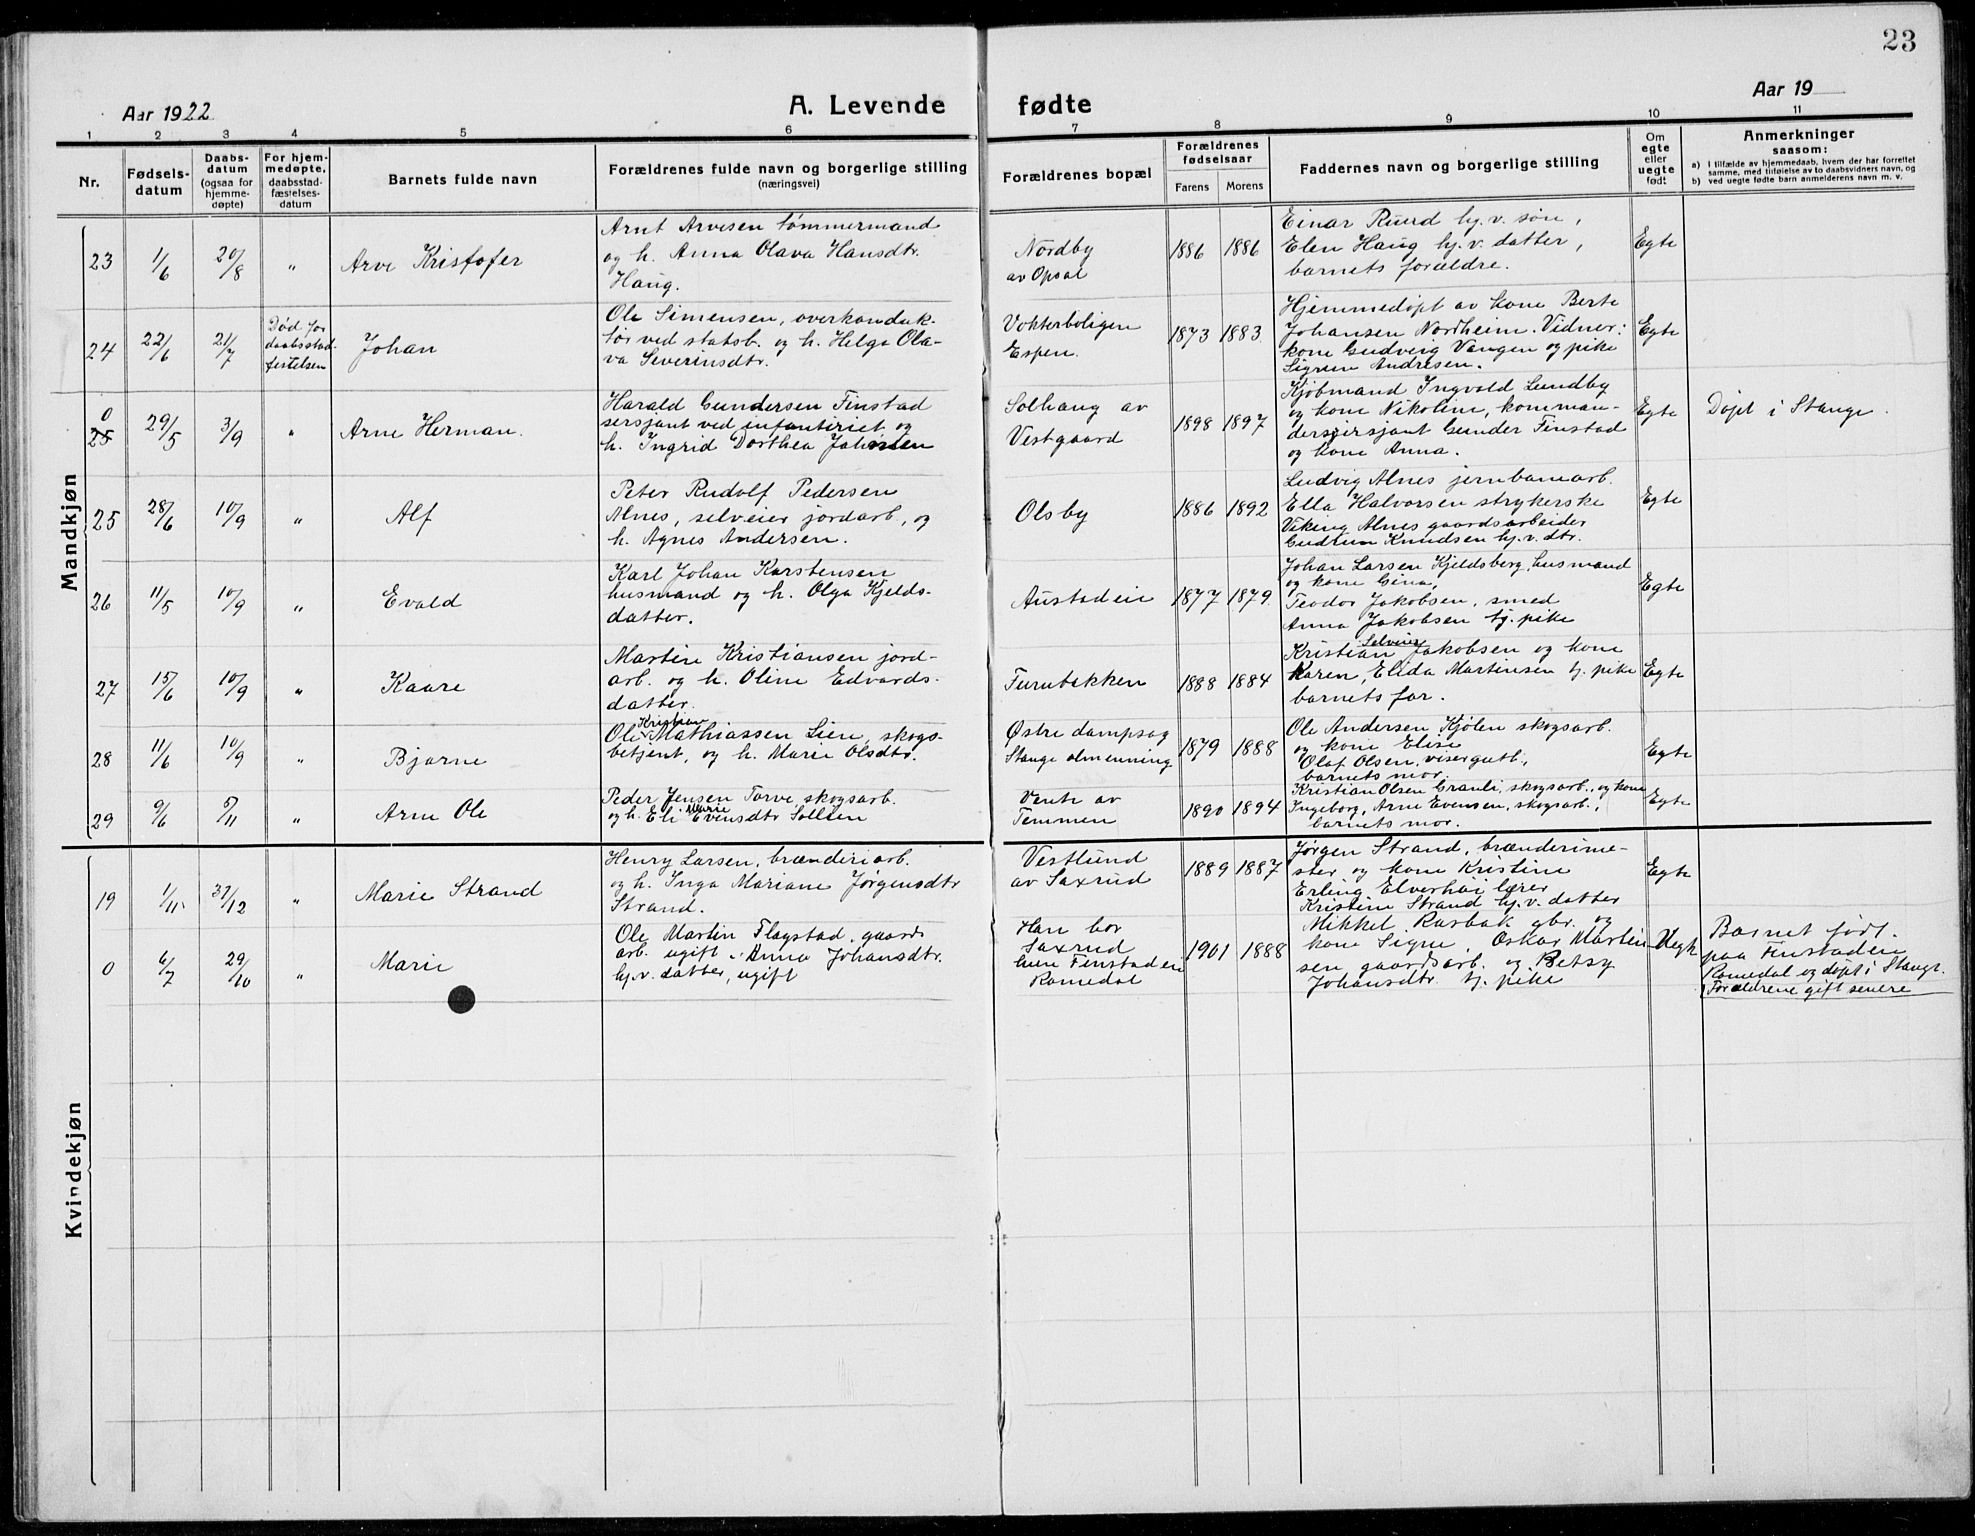 23
Aar 1922
A. Levende fødte
Aar 19
1 2 3 4 5 6 7 8 9 10 11
Nr.
Fødsels-
datum
Daabs-
datum
(ogsaa for
hjemme-
døpte)
For hjem-
medøpte,
daabsstad-
fæstelses-
datum
Barnets fulde navn
Forældrenes fulde navn og borgerlige stilling
(næringsvei)
Forældrenes bopæl
Forældrenes
fødselsaar
Farens
Morens
Faddernes navn og borgerlige stilling
Om
egte
eller
uegte
født
Anmerkninger
saasom:
a) I tilfælde av hjemmedaab, hvem der har forrettet
samme, med tilføielse av to daabsvidners navn, og
b) ved uegte fødte barn anmelderens navn m. v.
Mandkjøn
23 1/6 20/8 " Arve Kristofer
Arnt Arvesen tømmermand
og h. Anna Olava Hansdtr.
Haug.
Nordby
av Opsal
1886 1886
Einar Ruud hj.v. søn,
Elen Haug hj.v. datter,
barnets forældre.
Egte
24 22/6 21/7
Død før
daabsstad-
festelsen
Johan
Ole Simensen, overkonduk-
tør ved statsb. og h. Helga Ola-
va Severinsdtr.
Vokterboligen
Espen.
1873 1883
Hjemmedøpt av kone Berte
Johansen Nordheim. Vidner:
kone Gudveig Vangen og pike
Sigrun Andresen.
Egte
0
25 29/5 3/9 " Arne Herman.
Harald Gundersen Finstad
sersjant ved infanteriet og
h. Ingrid Dorthea Johnsen
Solhaug av
Vestgaard
1898 1897
Kjøbmand Ingvald Lundby
og kone Nikoline, komman-
dersersjant Gunder Finstad
og kone Anna.
Egte
Døpt i Stange.
25 28/6 10/9 " Alf
Peter Rudolf Pedersen
Alnes, selveier jordarb., og
h. Agnes Andersen.
Olsby
1886 1892
Ludvig Alnes jernbanearb.
Ella Halvorsen strykerske
Viking Alnes gaardsarbeider
Gudrun Knudsen hj.v. dtr.
Egte
26 11/5 10/9 " Evald
Karl Johan Karstensen
husmand og h. Olga Kjelds-
datter.
Austadeie
1877 1879
Johan Larsen Kjeldsberg, husmand
og kone Gina,
Teodor Jakobsen, smed
Anna Jakobsen tj. pike
Egte
27 15/6 10/9 " Kaare
Martin Kristiansen jord-
arb. og h. Oline Edvards-
datter.
Furubakken
1888 1884
Selveier
Kristian Jakobsen og kone
Karen, Elida Martinsen tj. pike
barnets far.
Egte
28 11/6 10/9 " Bjarne
Kristian
Ole Mathiassen Lien, skogs-
betjent, og h. Marie Olsdtr.
Østre dampsag
Stange almenning
1879 1888
Ole Andersen Kjølen skogsarb.
og kone Elise
Olaf Olsen, visergutt,
barnets mor.
Egte
29 9/6 5/11 " Arne Ole
Peder Jensen Torve, skogsarb.
Marie
og h. Eli Evensdtr Sollien
Vente av
Temmen
1890 1894
Kristian Olsen Granli, skogsarb., og kone
Ingeborg, Arne Evensen, skogsarb.,
barnets mor.
Egte
Kvindekjøn
19 1/11 31/12 " Marie Strand
Henry Larsen, brænderiarb.
og h. Inga Mariane Jørgensdtr
Strand.
Vestlund
av Saxrud
1889 1887
Jørgen Strand, brænderime-
ster og kone Kristine
Erling Elverhøi lærer
Kristine Strand hj.v. datter
Egte
0 6/7 29/10 " Marie
Ole Martin Flagstad, gaards
arb. ugift. Anna Johansdtr.
hj.v. datter, ugift
Han bor
Saxrud
hun Finstadeie
Romedal
1901 1888
Mikkel Rasbak gbr. og
kone Signe, Oskar Martin
sen gaardsarb. og Betsy
Johansdtr tj. pike
Uegte
Barnet født
paa Finstaden
Romedal og døpt i Stange.
Forældrene gift senere